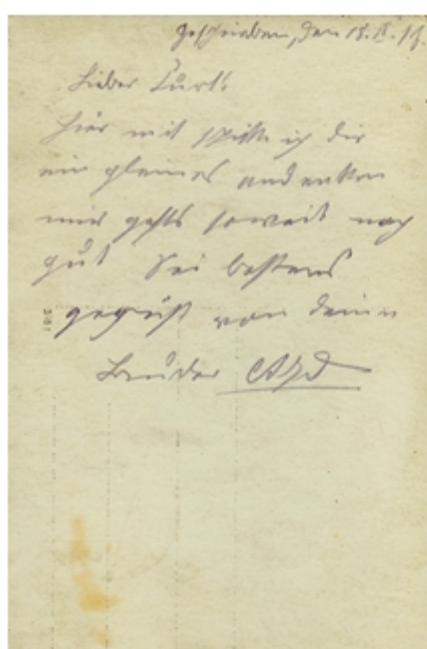 geschrieben, den 18.
Lieber Kurt!
Hier mit schicke ich dir
ein kleines andenken
mir gehts soweit noch
gut Sei bestens
gegrüst von dein
Bruder